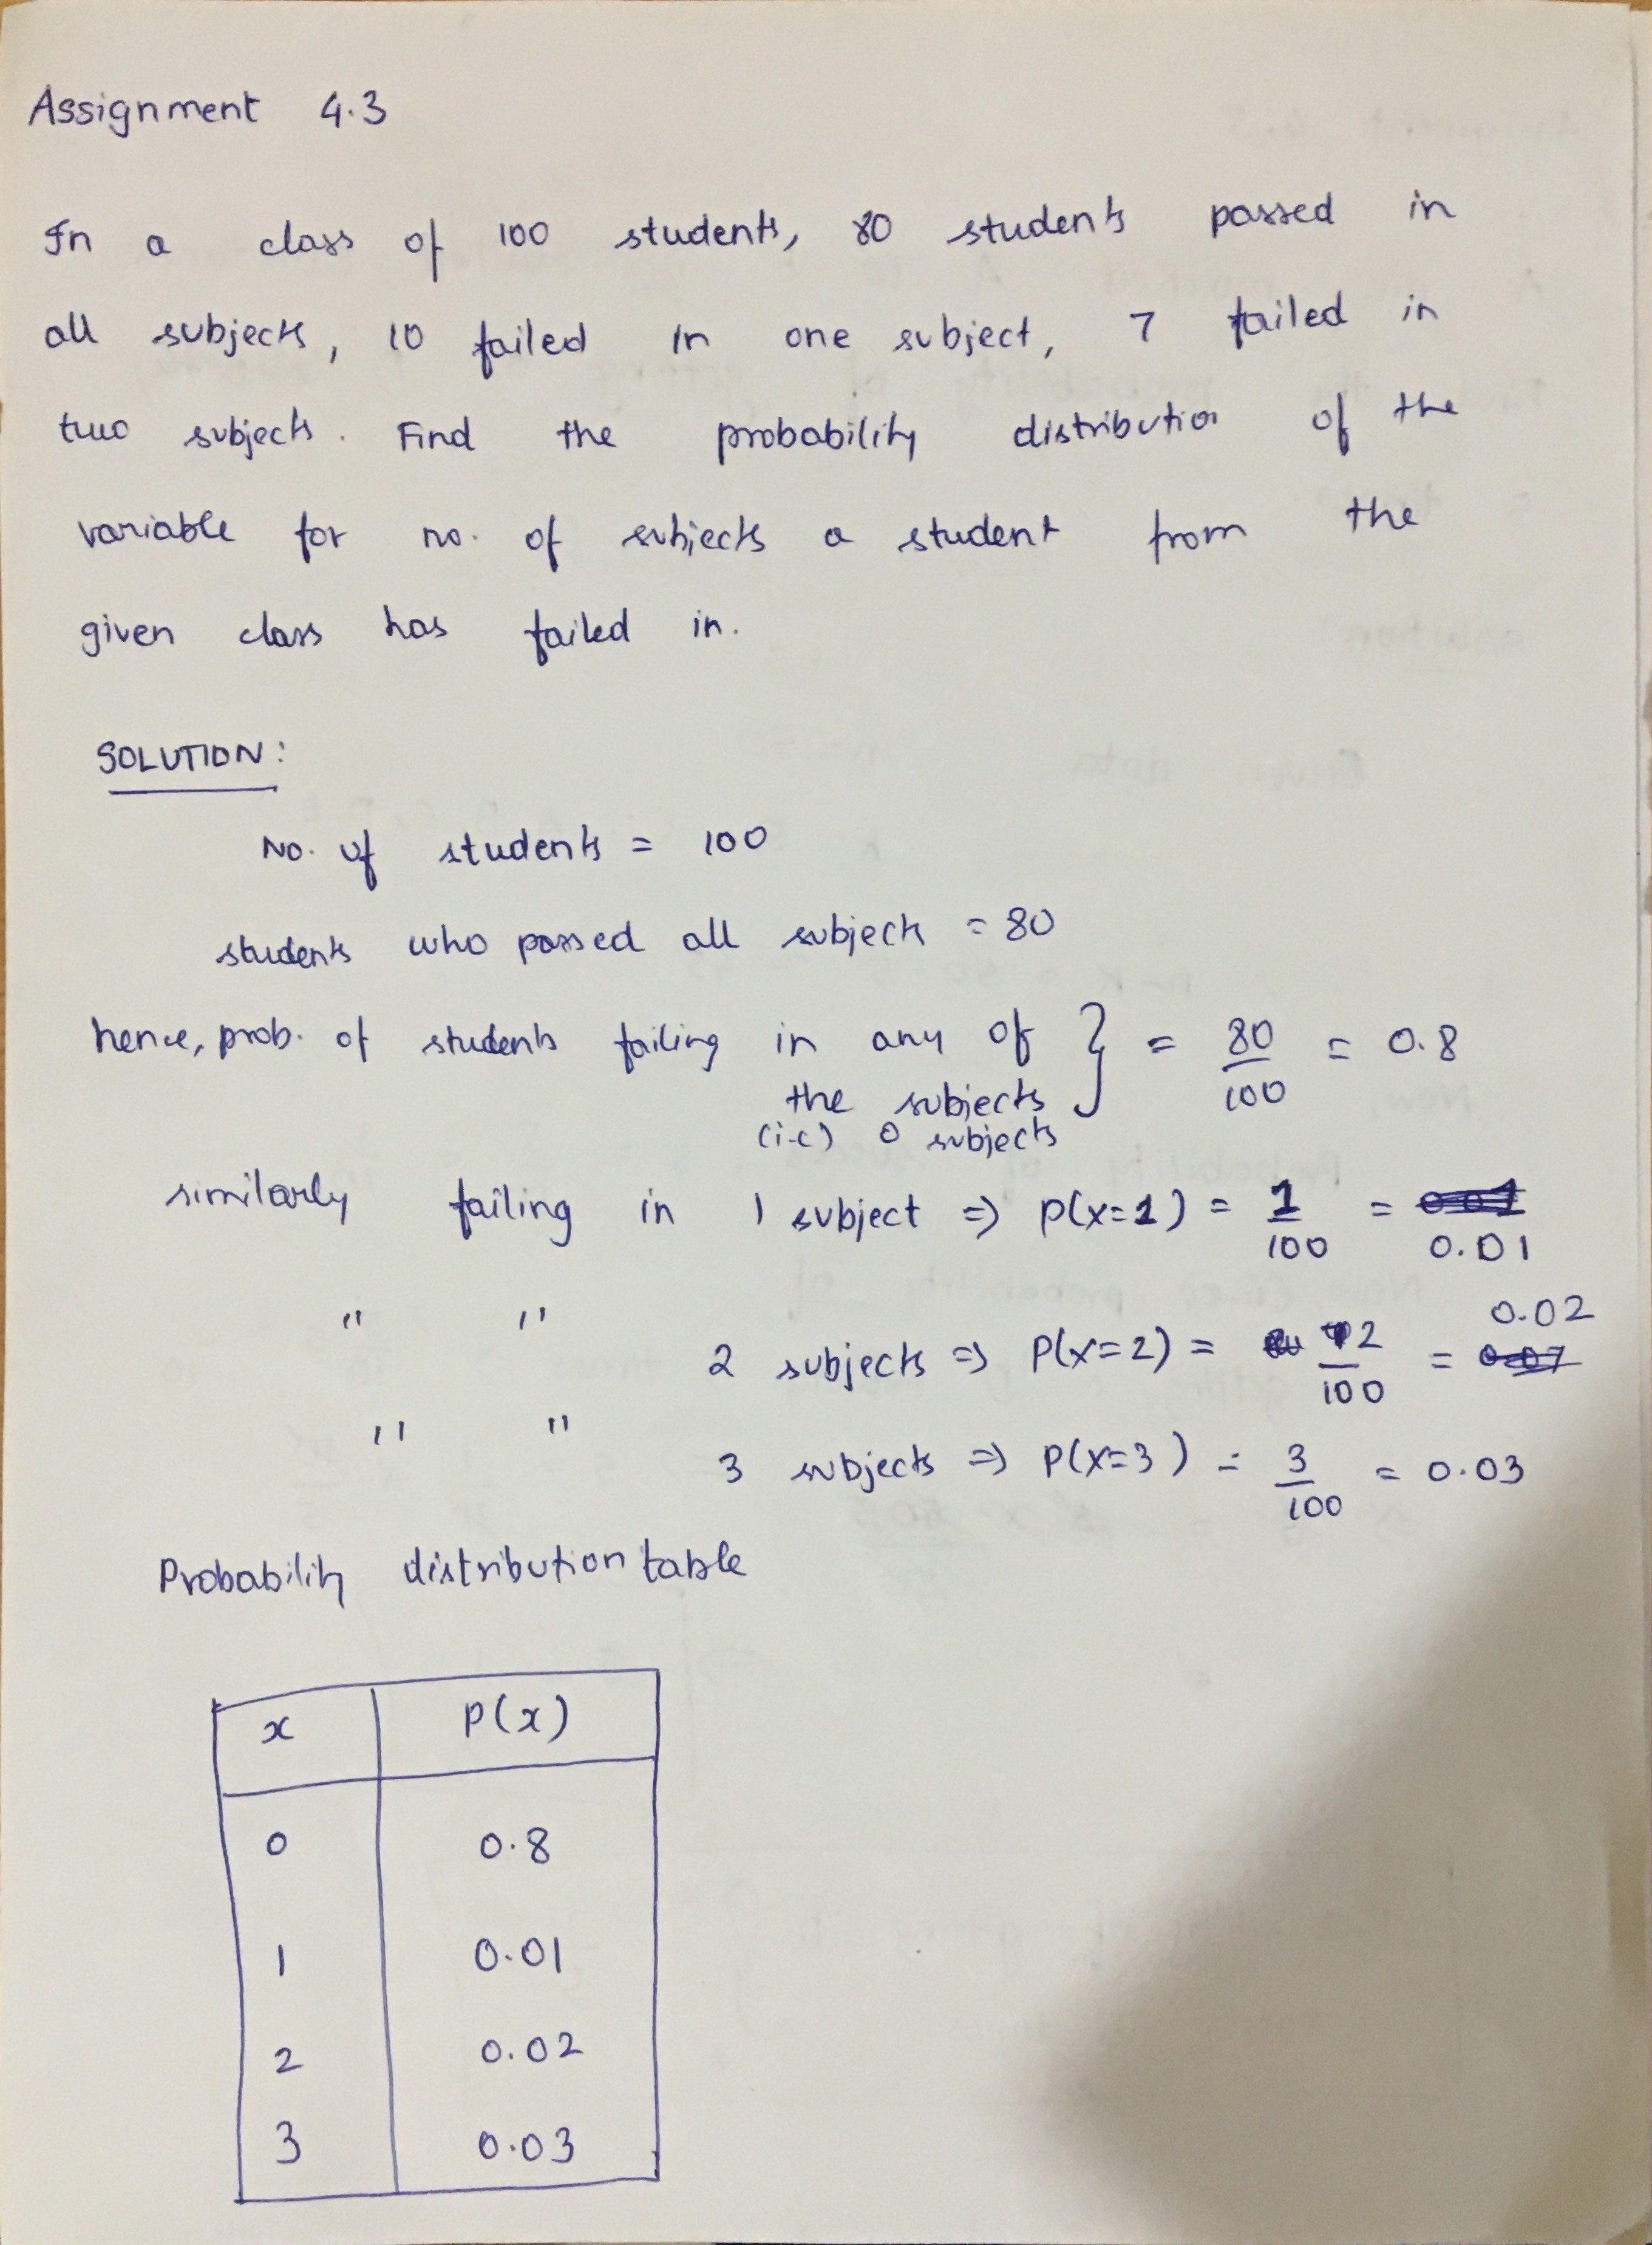 Assignment 4.3
In a class of 100 students, 80 students passed in
all subjects, 10 failed in one subject, 7 failed in
two subjects. Find the probability distribution of the
variable for no. of subjects a student from the
given class has failed in.
SOLUTION:
No. of students = 100
students who passed all subjects = 80
hence, prob. of students failing in any of } = 80/100 = 0.8
the subjects
(i.e) 0 subjects
similarly failing in 1 subject => P(x=1) = 1/100 = 0.01
" " 2 subjects => P(x=2) = 2/100 = 0.02
" " 3 subjects => P(x=3) = 3/100 = 0.03
Probability distribution table
x P(x)
0 0.8
1 0.01
2 0.02
3 0.03